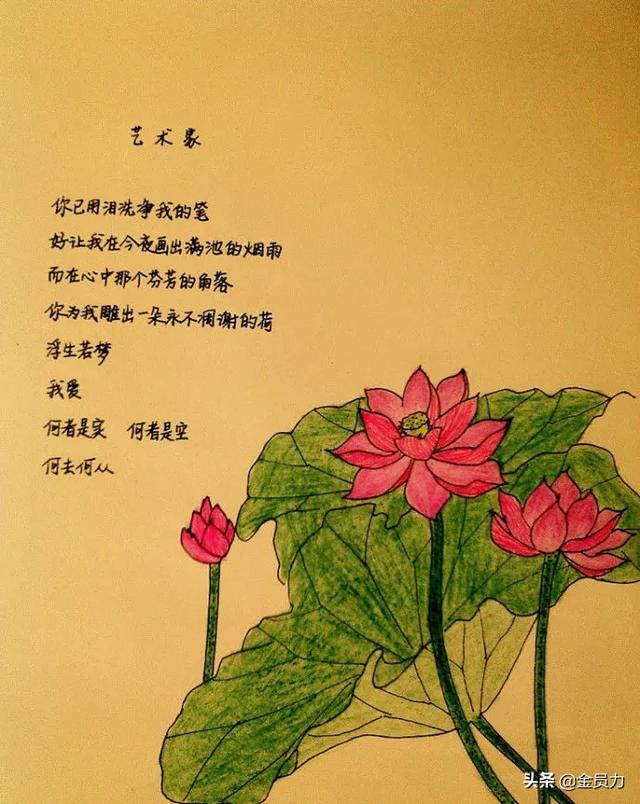 艺术家
你已用泪洗净我的笔
好让我在今夜画出满池的烟雨
而在心中那个芬芳的角落
你为我雕出一朵永不凋谢的荷
浮生若梦
我爱
何者是实 何者是空
何去何从
头条 @金员力